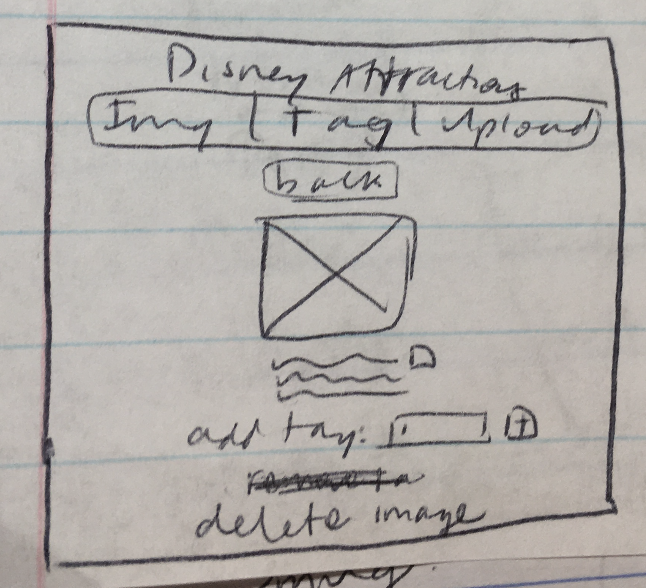 Disney Attractions
Img | Tag | Upload
back
add tag:
delete image